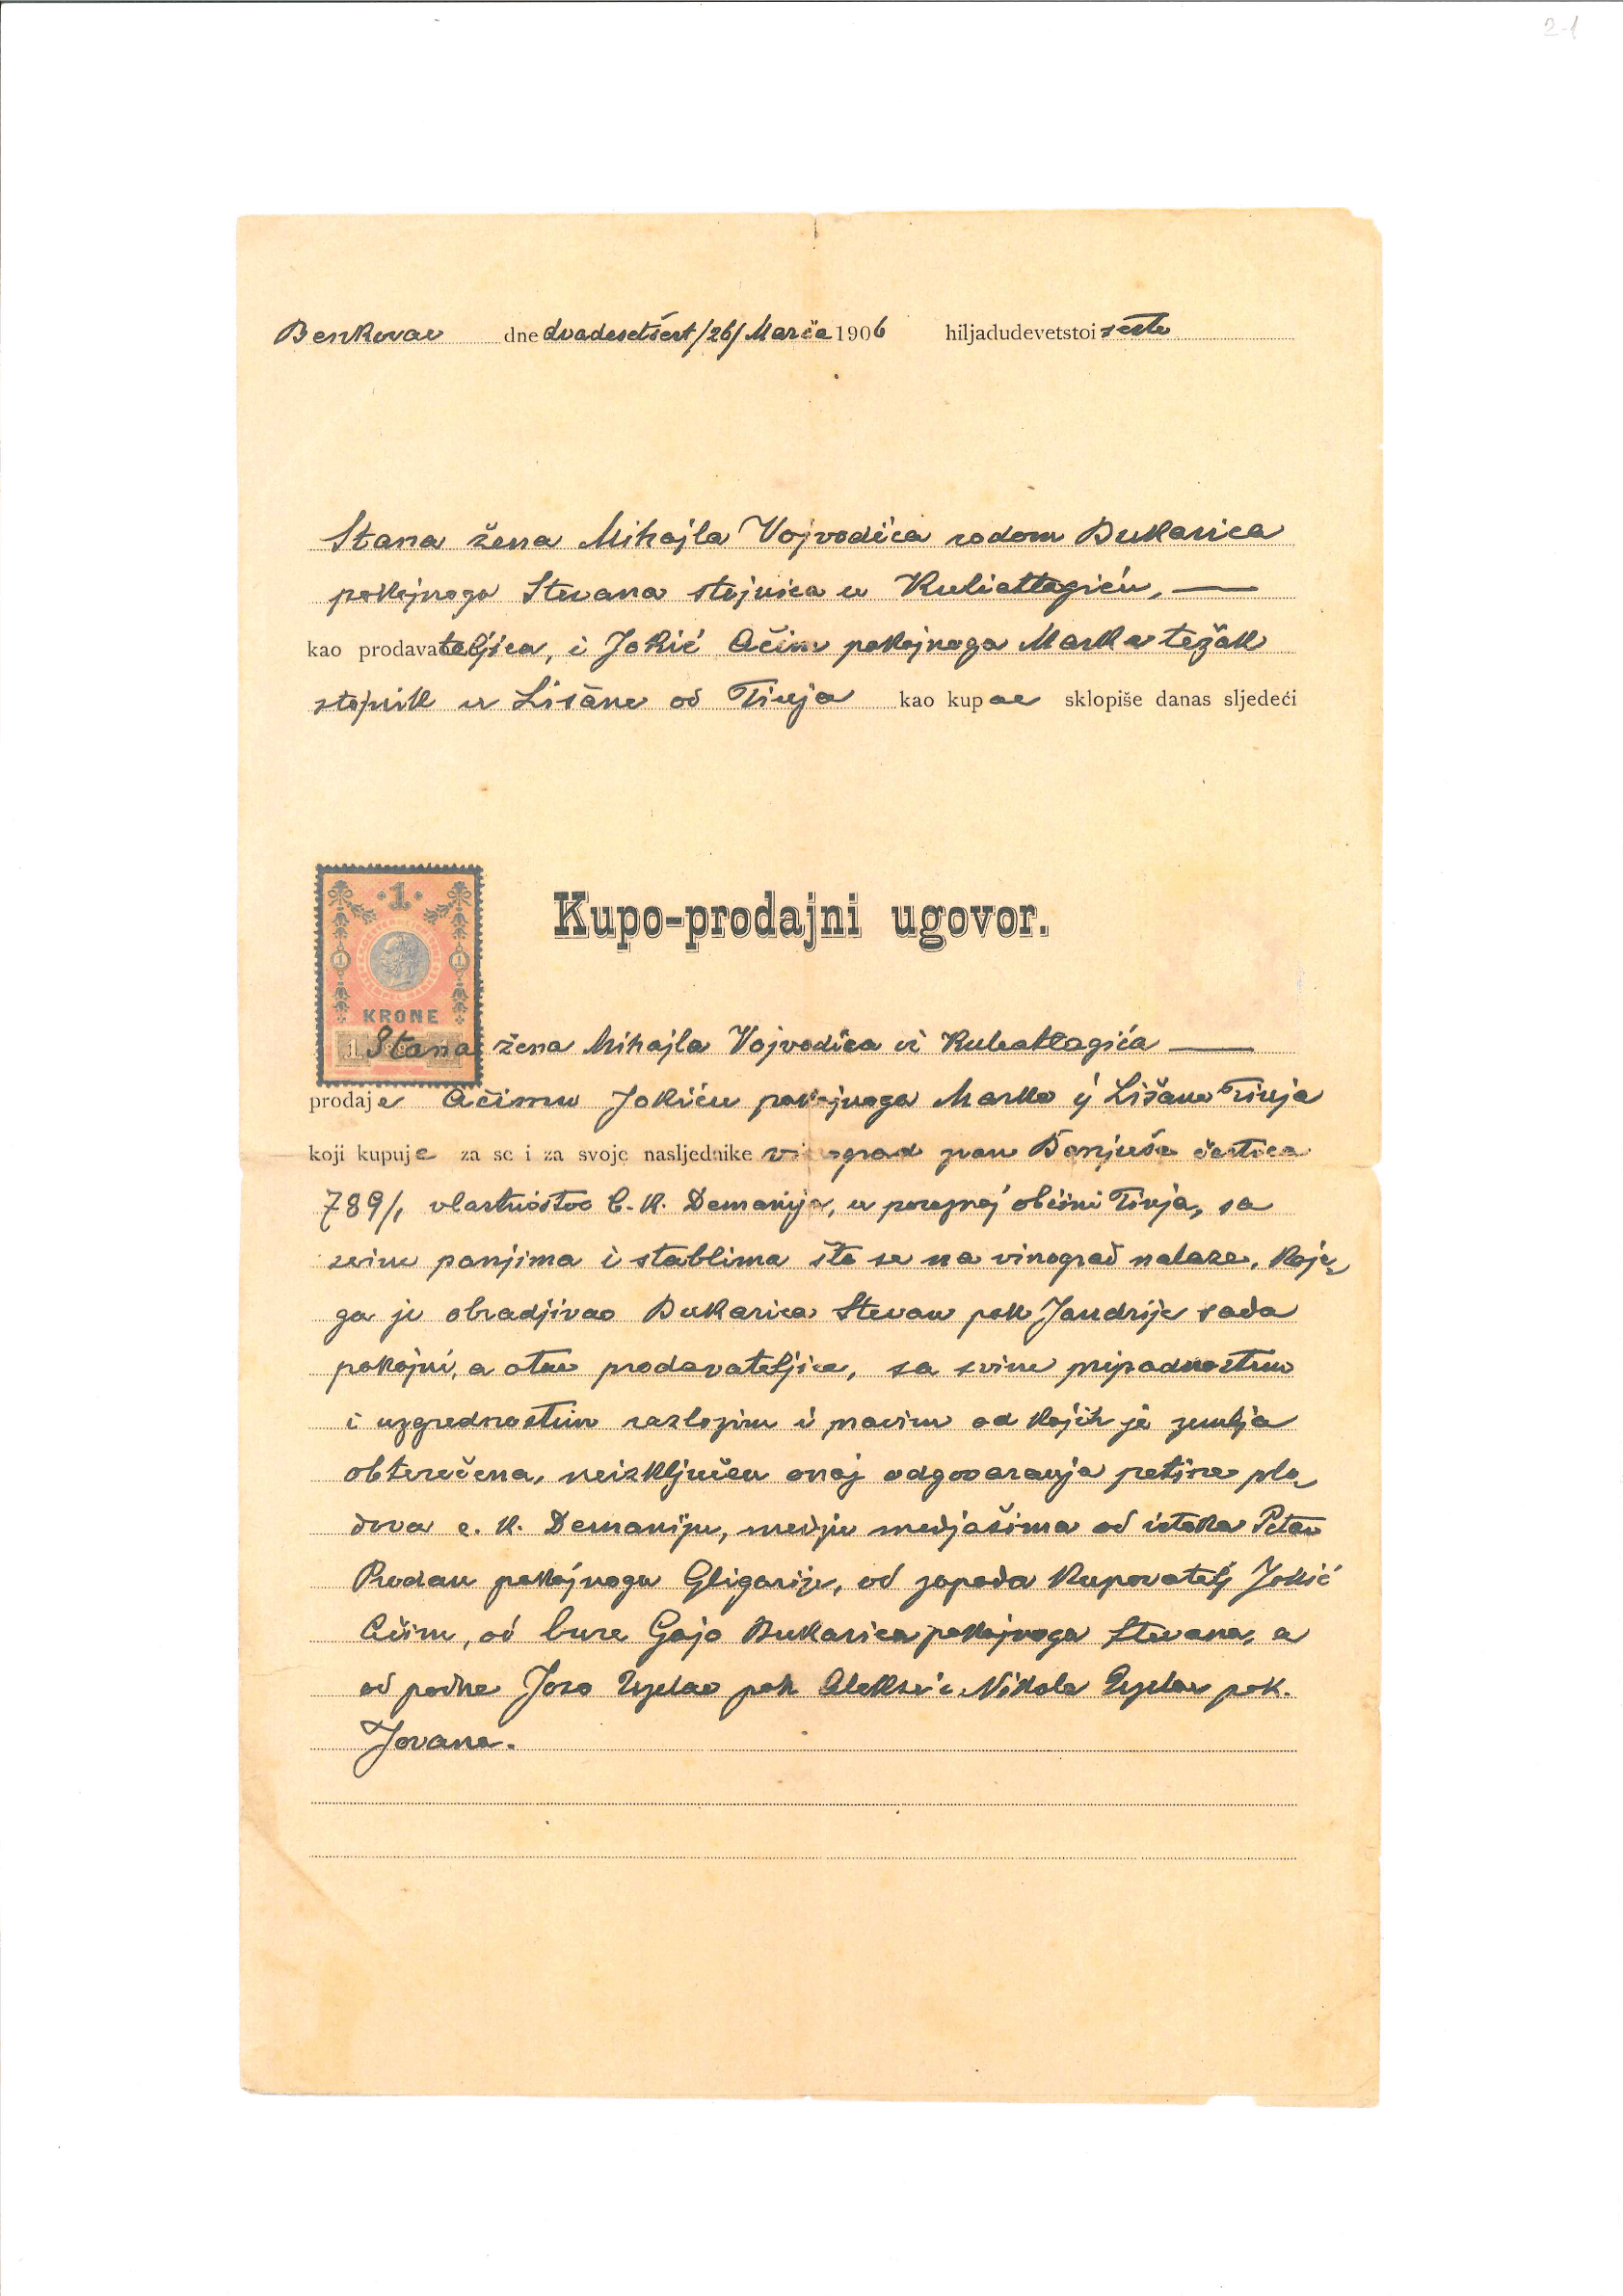 2-1
Benkovac dne dvadesetšest /26/ Marča 1906 hiljadudevetstoi šeste
Stana žena Mihajla Vojvodića rodom Dukarica
pokojnoga Stevana stojnica u Kuliatlagiću, —
kao prodavateljica, i Jokić Aćim pokojnoga Marka težak
stojnik u Lišane od Tinja kao kupac sklopiše danas sljedeći
1
Kupo-prodajni ugovor.
1 1
KRONE
Stana žena Mihajla Vojvodića iz Kuleatlagića —
prodaje Aćimu Jokiću pokojnoga Marka iz Lišane Tinja
koji kupuje za se i za svoje nasljednike vinograd zvan čestica
789/1 vlastnóstvo C. K. Demanija, u poreznoj obćini Tinja, sa
svim panjima i stablima što se na vinograd nalaze, koje-
ga je obradjivao Dukarica Stevan pok Jandrije sada
pokojni, a otac prodavateljice, sa svim pripadnostim
i uzgrednostim razlozim i pravim od kojih je zemlja
obterećena, neizključen onaj odgovaranja petine plo-
dova c. K. Demaniju, medju medjašima od istoka Petar
Prodan pokojnoga Gligorije, od zapada kupovatelj Jokić
Aćim, od bure Gajo Dukarica pokojnoga Stevana, a
od podne Joso Uzelac pok Alekse i Nikola Uzelac pok.
Jovana.